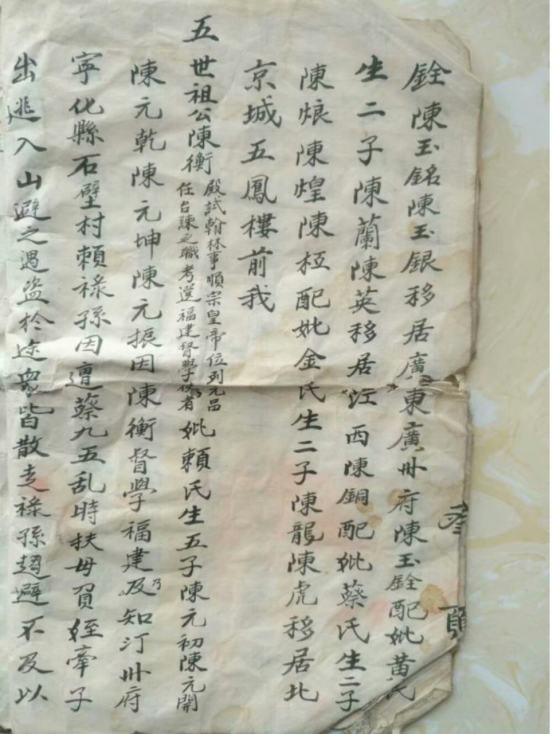 銓陳玉銘陳玉銀移居廣東廣州府陳玉銓配妣黃氏
生二子陳蘭陳英移居江西陳銅配妣蔡氏生二子
陳烺陳煌陳桓配妣金氏生二子陳龍陳虎移居北
京城五鳳樓前我
五世祖公陳衡
殿試翰林事順宗皇帝位列元品
任台諫之職考選福建督學使者
妣賴氏生五子陳元初陳元開
陳元乾陳元坤陳元振因陳衡督學福建及知汀州府
寧化縣石壁村賴祿孫因遭蔡九五乱時扶母負姪牽子
出逃入山避之遇盜於途衆皆散走祿孫趨避不及以
頁